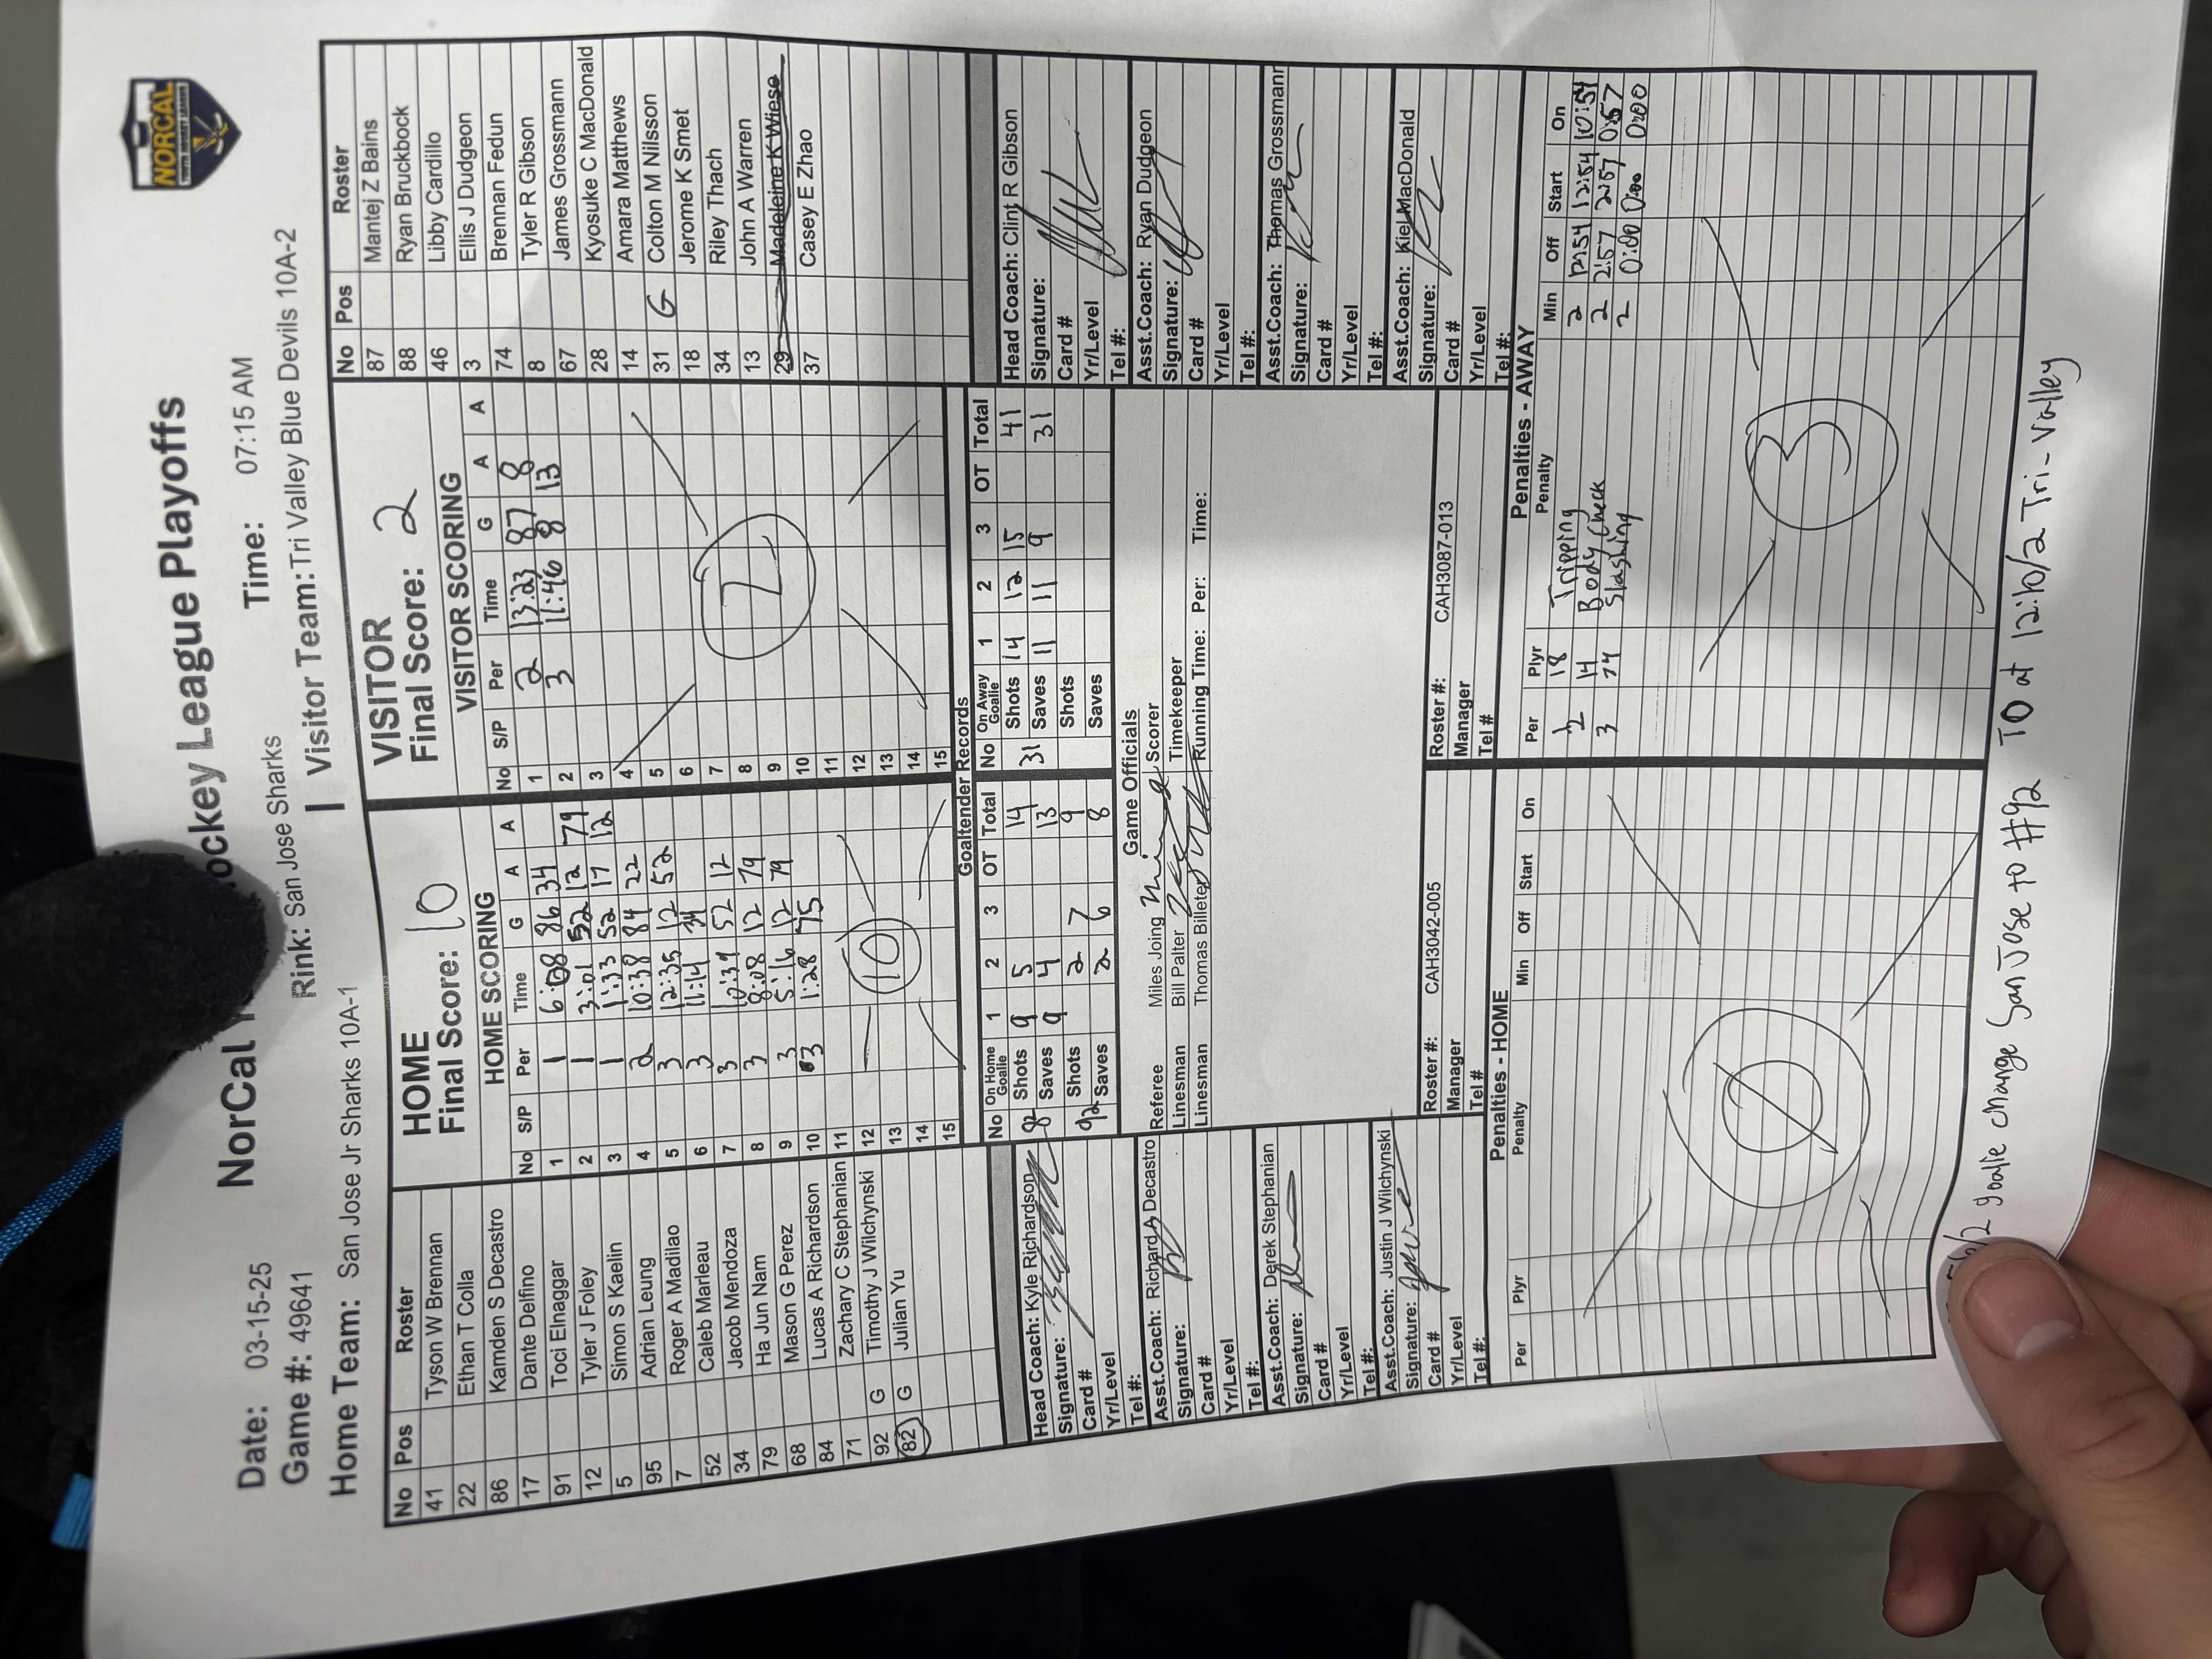 NorCal Hockey League Playoffs
NORCAL
Date: 03-15-25
Rink: San Jose Sharks
Time: 07:15 AM
Game #: 49641
Home Team: San Jose Jr Sharks 10A-1
Visitor Team: Tri Valley Blue Devils 10A-2
No Pos Roster
41 Tyson W Brennan
22 Ethan T Colla
86 Kamden S Decastro
17 Dante Delfino
91 Toci Elnaggar
12 Tyler J Foley
5 Simon S Kaelin
95 Adrian Leung
7 Roger A Madilao
52 Caleb Marleau
34 Jacob Mendoza
79 Ha Jun Nam
68 Mason G Perez
84 Lucas A Richardson
71 Zachary C Stephanian
92 G Timothy J Wilchynski
82 G Julian Yu
HOME
Final Score: 10
HOME SCORING
No S/P Per Time G A A
1 1 6:08 86 34
2 1 3:01 52 12 79
3 1 1:33 52 17 12
4 2 10:38 84 22
5 3 12:35 12 52
6 3 11:14 34
7 3 10:34 52 12
8 3 8:08 12 79
9 3 5:16 12 79
10 3 1:28 75
11
12
13
14
15
10
VISITOR
Final Score: 2
VISITOR SCORING
No S/P Per Time G A A
1 2 13:23 87 8
2 3 11:46 8 13
3
4
5
6
7
8
9
10
11
12
13
14
15
2
No Pos Roster
87 Mantej Z Bains
88 Ryan Bruckbock
46 Libby Cardillo
3 Ellis J Dudgeon
74 Brennan Fedun
8 Tyler R Gibson
67 James Grossmann
28 Kyosuke C MacDonald
14 Amara Matthews
31 G Colton M Nilsson
18 Jerome K Smet
34 Riley Thach
13 John A Warren
29 Madeleine K Wiese
37 Casey E Zhao
Goaltender Records
No On Home Goalie 1 2 3 OT Total
82 Shots 9 5 14
Saves 9 4 13
92 Shots 2 7 9
Saves 2 6 8
No On Away Goalie 1 2 3 OT Total
31 Shots 14 12 15 41
Saves 11 11 9 31
Shots
Saves
Head Coach: Kyle Richardson
Signature:
Card #
Yr/Level
Tel #:
Asst.Coach: Richard A Decastro
Signature:
Card #
Yr/Level
Tel #:
Asst.Coach: Derek Stephanian
Signature:
Card #
Yr/Level
Tel #:
Asst.Coach: Justin J Wilchynski
Signature:
Card #
Yr/Level
Tel #:
Game Officials
Referee Miles Joing Scorer
Linesman Bill Palter Timekeeper
Linesman Thomas Billeter Running Time: Per: Time:
Roster #: CAH3042-005
Manager
Tel #
Roster #: CAH3087-013
Manager
Tel #
Head Coach: Clint R Gibson
Signature:
Card #
Yr/Level
Tel #:
Asst.Coach: Ryan Dudgeon
Signature:
Card #
Yr/Level
Tel #:
Asst.Coach: Thomas Grossmann
Signature:
Card #
Yr/Level
Tel #:
Asst.Coach: Kiel MacDonald
Signature:
Card #
Yr/Level
Tel #:
Penalties - HOME
Per Plyr Penalty Min Off Start On
0
Penalties - AWAY
Per Plyr Penalty Min Off Start On
18 Tripping 2 12:54 12:54 10:54
2 14 Body Check 2 2:57 2:57 0:57
3 74 Slashing 2 0:00 0:00 0:00
3
/2 goalie change San Jose to #92 TO at 12:10/2 Tri-Valley